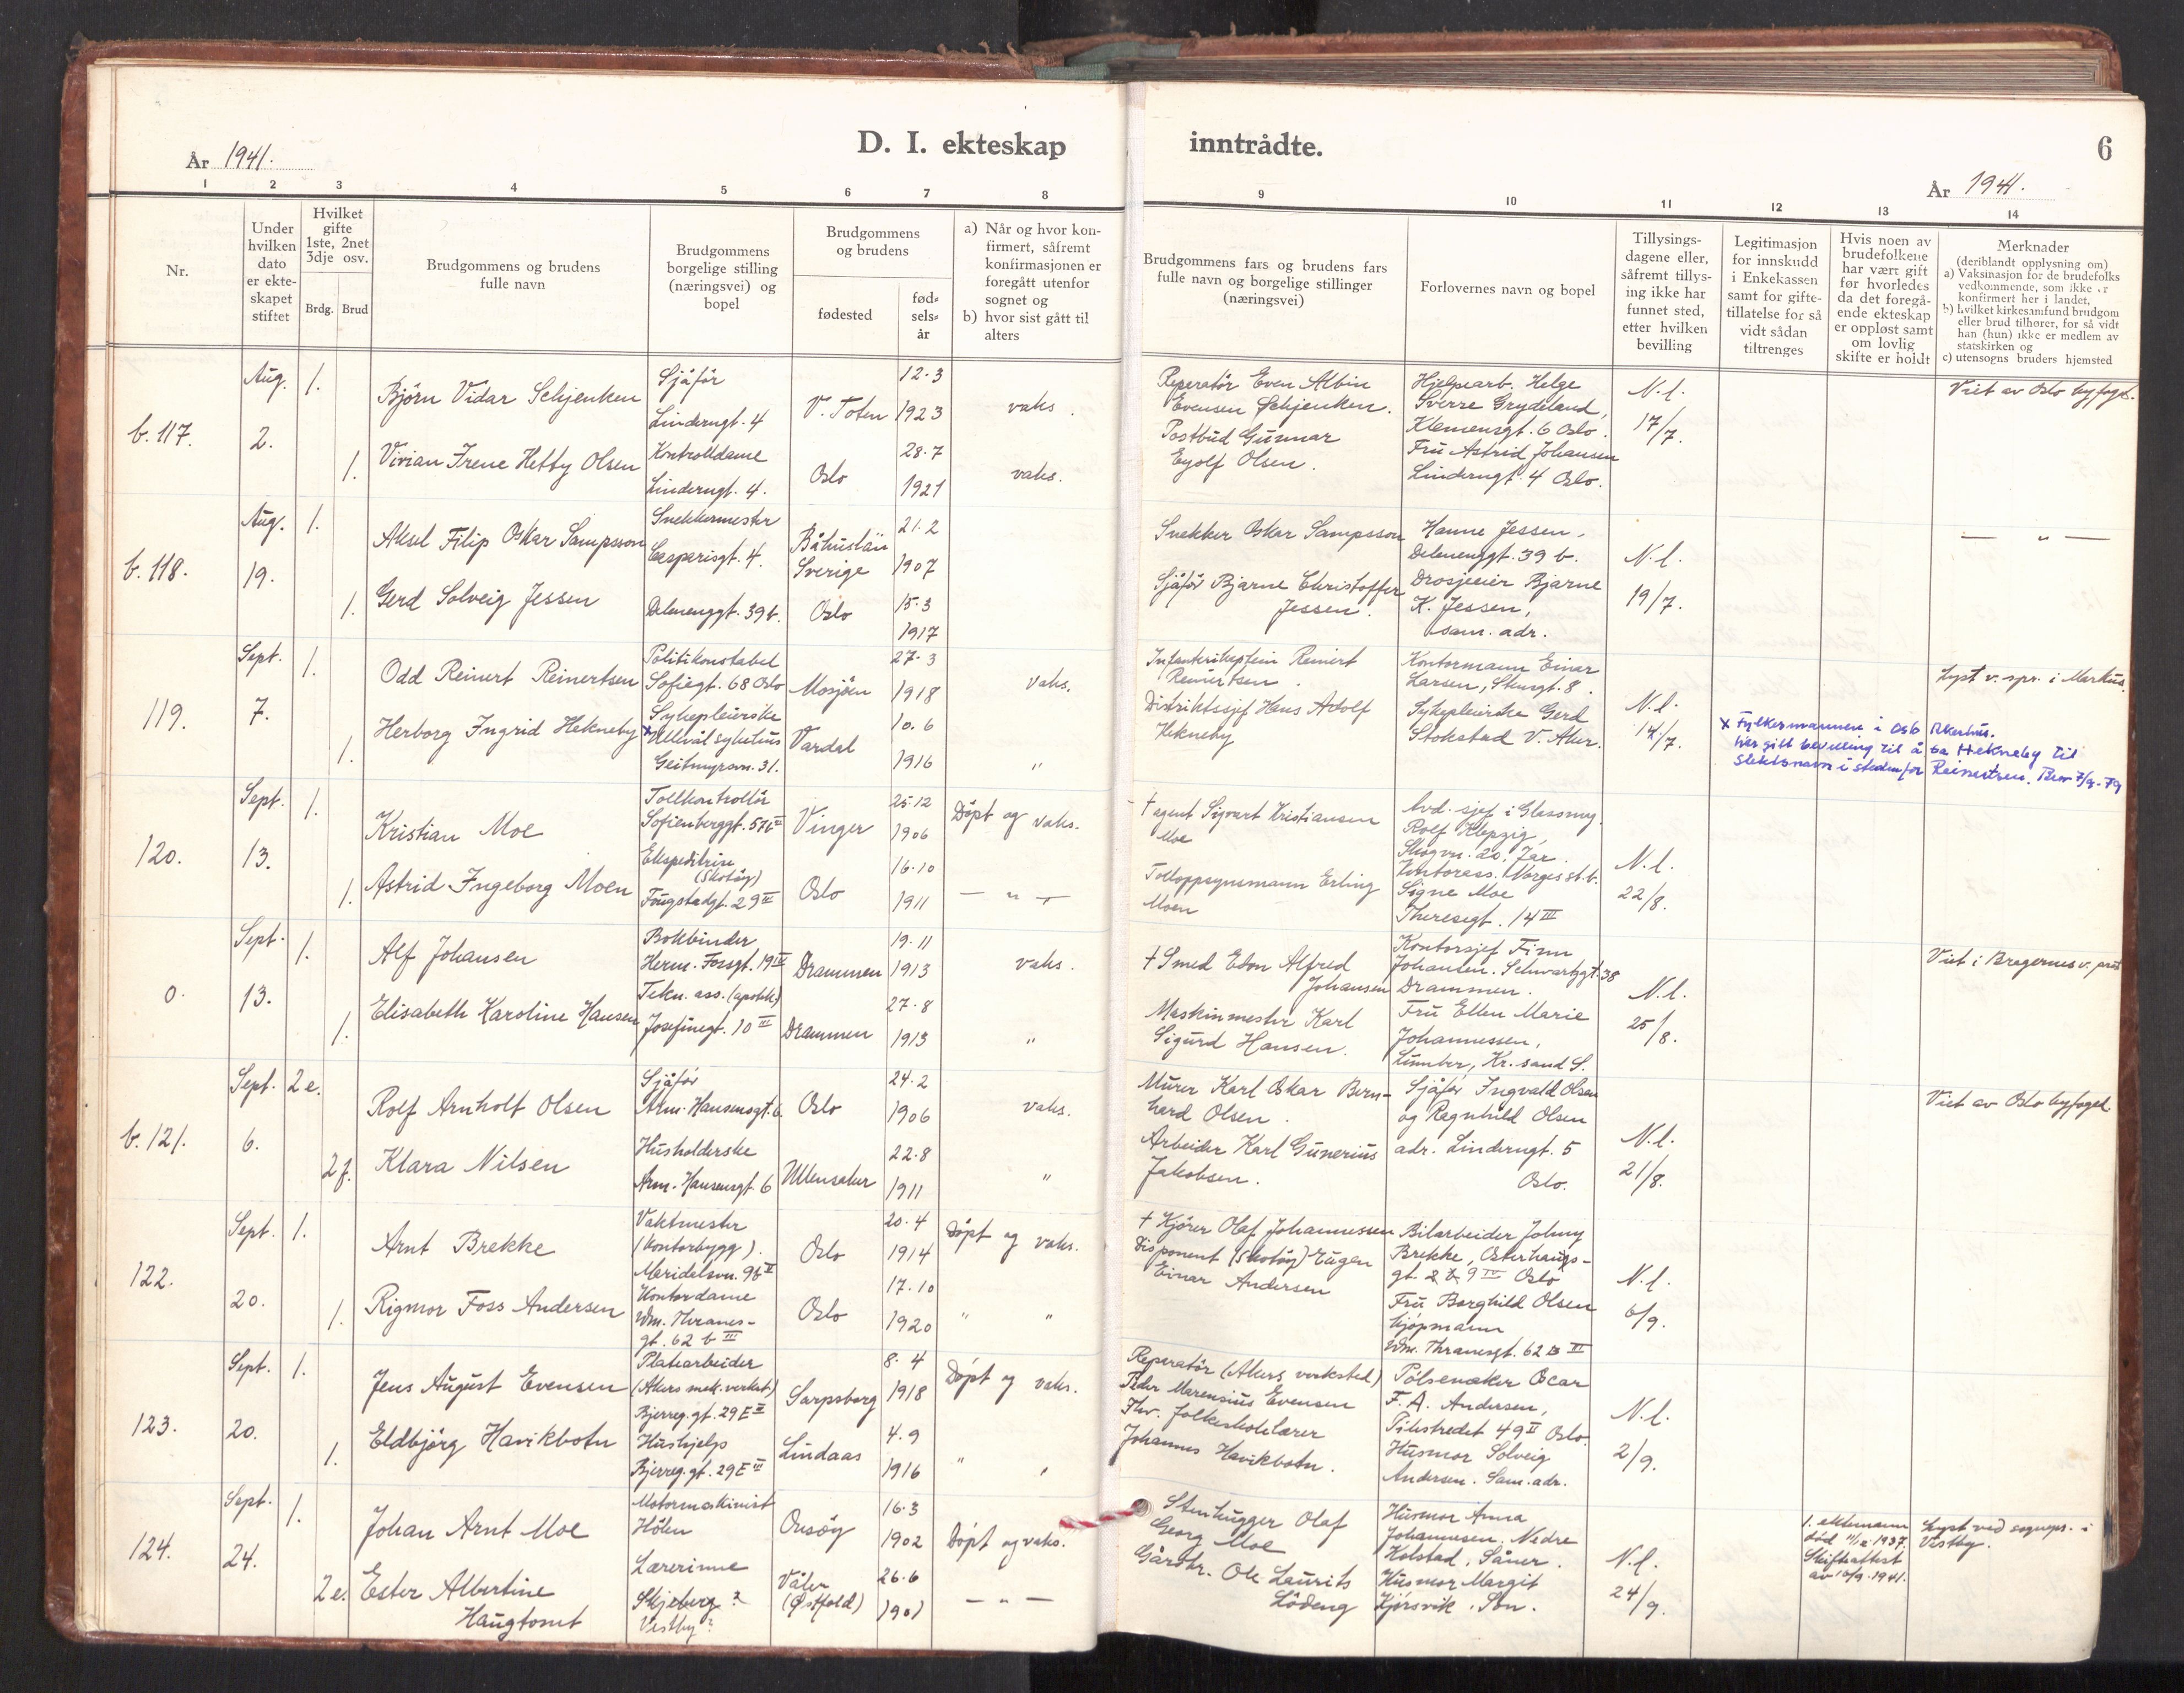 År 1941.
D. I. ekteskap
inntrådte.
6
År 1941.
1 2 3 4 5 6 7 8
9 10 11 12 13 14
Nr.
Under hvilken dato er ekte-skapet stiftet
Hvilket gifte 1ste, 2net 3dje osv.
Brdg. Brud
Brudgommens og brudens fulle navn
Brudgommens borgelige stilling (næringsvei) og bopel
Brudgommens og brudens
fødested
fød-sels-år
a) Når og hvor kon-firmert, såfremt konfirmasjonen er foregått utenfor sognet og
b) hvor sist gått til alters
Brudgommens fars og brudens fars fulle navn og borgelige stillinger (næringsvei)
Forlovernes navn og bopel
Tillysings-dagene eller, såfremt tillys-ing ikke har funnet sted, etter hvilken bevilling
Legitimasjon for innskudd i Enkekassen samt for gifte-tillatelse for så vidt sådan tiltrenges
Hvis noen av brudefolkene har vært gift før hvorledes da det foregå-ende ekteskap er oppløst samt om lovlig skifte er holdt
Merknader
(deriblandt opplysning om)
a) Vaksinasjon for de brudefolks vedkommende, som ikke er konfirmert her i landet,
b) hvilket kirkesamfund brudgom eller brud tilhører, for så vidt han (hun) ikke er medlem av statskirken og
c) utensogns bruders hjemsted
b. 117.
Aug. 2.
1.
Bjørn Vidar Schjenken
Sjåfør
Linderngt. 4
V. Toten
12.3 1923
vaks.
Reperatør Even Albin
Evensen Schjenken.
Hjelpearb. Helge
Sverre Grydeland,
Klemensgt. 6 Oslo.
N.l.
17/7.
Viet av Oslo byfogd.
1.
Vivian Irene Hetty Olsen
Kontrolldame
Linderngt. 4.
Oslo
28.7 1921
vaks.
Postbud Gunnar
Eyolf Olsen.
Fru Astrid Johansen
Linderngt. 4 Oslo.
b. 118.
Aug. 19.
1.
Aksel Filip Oskar Sampsson
Snekkermester
Casparisgt. 4.
Båhuslän
Sverige
21.2 1907
Snekker Oskar Sampsson
Hanne Jessen,
Delenenggt. 39 b.
N.l.
19/7.
— " —
1.
Gerd Solveig Jessen
Delenenggt. 39 b.
Oslo
15.3 1917
Sjåfør Bjarne Christoffer
Jessen.
Drosjeeier Bjarne
K. Jessen,
sam. adr.
119.
Sept. 7.
1.
Odd Reinert Reinertsen
Politikonstabel
Sofiegt. 68 Oslo
Mosjøen
27.3 1918
vaks.
Infanterikaptein Reinert
Reinertsen.
Kontormann Einar
Larsen, Stensgt. 8.
N.l.
14/7.
Lyst v. spr. i Markus.
1.
Herborg Ingrid Hekneby
Sykepleierske
x Ullevål sykehus
Geitmyrsvn. 31.
Vardal
10.6 1916
"
Distriktssjef Hans Adolf
Hekneby
Sykepleierske Gerd
Stokstad V. Aker.
x Fylkesmannen i Oslo Akershus.
har gitt bevilling til å ta Hekneby til
slektsnavn i stedenfor Reinertsen. Brev 7/9-79
120.
Sept. 13.
1.
Kristian Moe
Tollkontrollør
Sofienberggt. 57b III
Vinger
25.12 1906
Døpt og vaks.
† agent Sigvart Kristiansen
Moe
Avd. sjef i Glassmag.
Rolf Klepzig,
Skogvn. 20, Jar.
N.l.
22/8.
1.
Astrid Ingeborg Moen
Ekspeditrise
(Skotøy)
Fougstadgt. 29 II
Oslo
16.10 1911
— " —
Tolloppsynsmann Erling
Moen
Kontorass. Norges st. b.
Signe Moe
Theresegt. 14 III
0.
Sept. 13.
1.
Alf Johansen
Bokbinder
Herm. Fossgt. 19 IV
Drammen
19.11 1913
vaks.
† Smed Edon Alfred
Johansen
Kontorsjef Finn
Johansen. Schwartzgt. 38
Drammen.
N.l.
25/8.
Viet i Bragernes v. prest
1.
Elisabeth Karoline Hansen
Tekn. ass. (apotek)
Josefinegt. 10 III
Drammen
27.8 1913
"
Maskinmester Karl
Sigurd Hansen.
Fru Ellen Marie
Johannessen,
Lumber, Kr. sand S.
b. 121.
Sept. 6.
2 e.
Rolf Arnholt Olsen
Sjåfør
Arm. Hansensgt. 6
Oslo
24.2 1906
vaks.
Murer Karl Oskar Bern-
hard Olsen.
Sjåfør Ingvald Olsen
og Ragnhild Olsen
adr. Linderngt. 5
Oslo.
N.l.
21/8.
Viet av Oslo byfogd.
2 f.
Klara Nilsen
Husholderske
Arm. Hansensgt 6
Ullensaker
22.8 1911
"
Arbeider Karl Gunerius
Jakobsen.
122.
Sept. 20.
1.
Arnt Brekke
Vaktmester
(kontorbygg).
Maridalsvn. 9b II
Oslo
20.4 1914
Døpt og vaks.
† Kjører Olaf Johannessen
Bilarbeider Johny
Brekke, Osterhaugs-
gt. 9 IV Oslo
N.l.
6/9.
1.
Rigmor Foss Andersen
Kontordame
Wm. Thranes-
gt. 62 b III
Oslo
17.10 1920
" "
Disponent (skotøy) Eugen
Einar Andersen
Fru Borghild Olsen
kjøpmann
Wm. Thranesgt. 62 B III
123.
Sept. 20.
1.
Jens August Evensen
Platearbeider
(Akers mek. verkst)
Bjerreg. gt. 29 E III
Sarpsborg
8.4 1918
Døpt og vaks.
Reperatør (Akers verksted)
Peder Marensius Evensen
Pølsemaker Oscar
F. A. Andersen,
Pilestredet 49 II Oslo.
N.l.
2/9.
1.
Eldbjørg Havikbotn
Hushjelp
Bjerreg. gt. 29 E III
Lindaas
4.9 1916
" "
Fhv. folkeskolelærer
Johannes Havikbotn.
Husmor Solveig
Andersen. Sam. adr.
124.
Sept. 24.
1.
Johan Arnt Moe
Motormaskinist
Hølen
Onsøy
16.3 1902
Døpt og vaks.
Stenhugger Olaf
Georg Moe
Husmor Anna
Johannesen, Nedre
Kolstad, Såner.
N.l.
24/9.
1. ektemann
død 11/12 1937.
Skifteattest
av 10/9. 1941.
Lyst ved sognepr. i
Vestby.
2 e.
Ester Albertine
Haugtomt
Lærerinne
Skjeberg?
Vestby?
Våler
(Østfold)
26.6 1901
— " —
Gårdbr. Ole Laurits
Lödeng
Husmor Margit
Kjørsvik, Son.